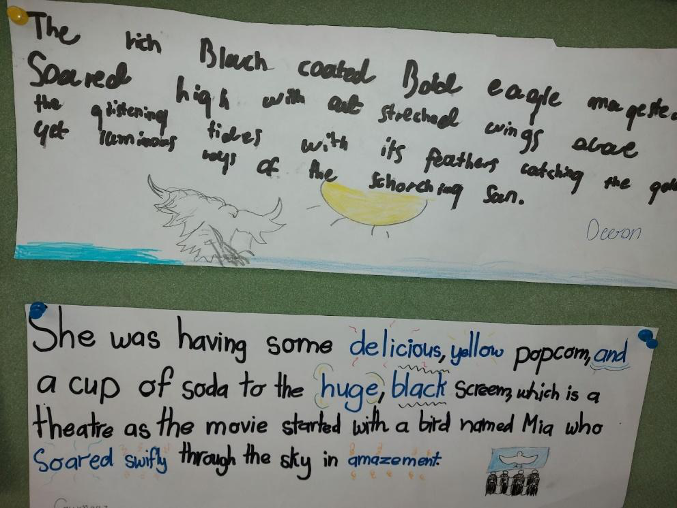 The rich Black coated Bold eagle mageste
Soared high with out streched wings above
the glistening tides with its feathers catching the gol
yet luminous rays of the schorching sun.
Deeron
She was having some delicious, yellow popcorn, and
a cup of soda to the huge, black screen, which is a
theatre as the movie started with a bird named Mia who
Soared swifly through the sky in amazement.